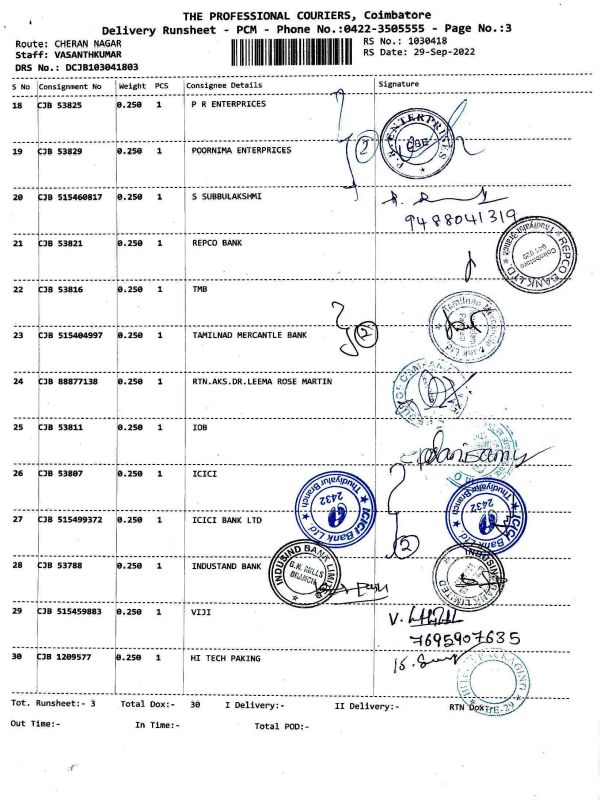 THE PROFESSIONAL COURIERS, Coimbatore
Delivery Runsheet - PCM - Phone No.:0422-3505555 - Page No.:3
Route: CHERAN NAGAR RS No.: 1030418
Staff: VASANTHKUMAR RS Date: 29-Sep-2022
DRS No.: DCJB103041803
S No Consignment No Weight PCS Consignee Details Signature
18 CJB 53825 0.250 1 P R ENTERPRICES
P.R ENTERPRISES CBE
2
19 CJB 53829 0.250 1 POORNIMA ENTERPRICES
20 CJB 515460817 0.250 1 S SUBBULAKSHMI
9488041319
21 CJB 53821 0.250 1 REPCO BANK
REPCO BANK LTD Coimbatore
22 CJB 53816 0.250 1 TMB
23 CJB 515404997 0.250 1 TAMILNAD MERCANTILE BANK
2
Tamilnad Mercantile Bank Ltd
24 CJB 88877138 0.250 1 RTN.AKS.DR.LEEMA ROSE MARTIN
25 CJB 53811 0.250 1 IOB
26 CJB 53807 0.250 1 ICICI
ICICI Bank Ltd. Thudiyalur Branch 2432
ICICI Bank Ltd. Thudiyalur Branch 2432
27 CJB 515499372 0.250 1 ICICI BANK LTD
2
28 CJB 53788 0.250 1 INDUSTAND BANK
INDUSIND BANK LIMITED G.N. MILLS BRANCH
29 CJB 515459883 0.250 1 VIJI
V.
7695907635
30 CJB 1209577 0.250 1 HI TECH PAKING
Tot. Runsheet:- 3 Total Dox:- 30 I Delivery:- II Delivery:- RTN Dox:-
Out Time:- In Time:- Total POD:-